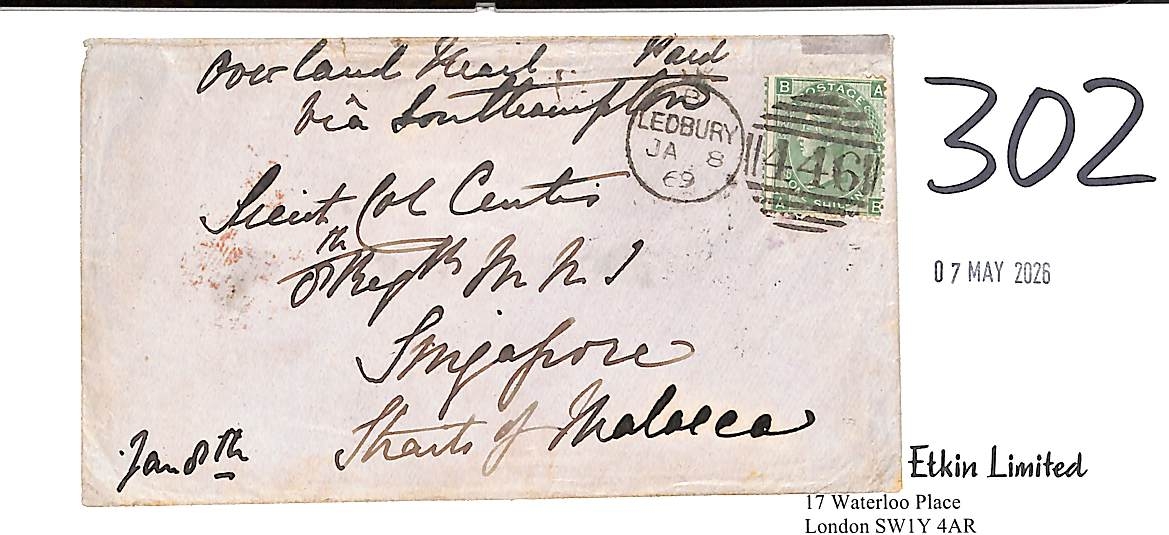 Overland Mail Paid
via Southampton
B
LEDBURY
JA 8
69
446
B POSTAGE A
ONE SHILLIN
A B
302
Lieut Col Centis
8th Regth M N I
07 MAY 2026
Singapore
Straits of Malacca
Jan 8th
Etkin Limited
17 Waterloo Place
London SW1Y 4AR